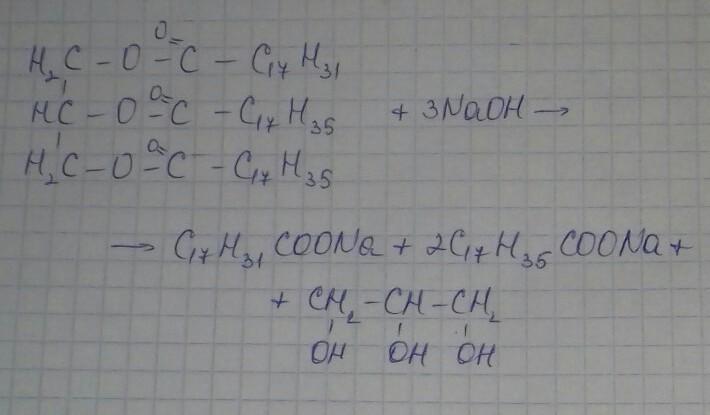 H₂C – O – C – C₁₇H₃₁
O=
HC – O – C – C₁₇H₃₅ + 3NaOH →
O=
H₂C – O – C – C₁₇H₃₅
O=
→ C₁₇H₃₁COONa + 2C₁₇H₃₅COONa +
+ CH₂ – CH – CH₂
OH OH OH